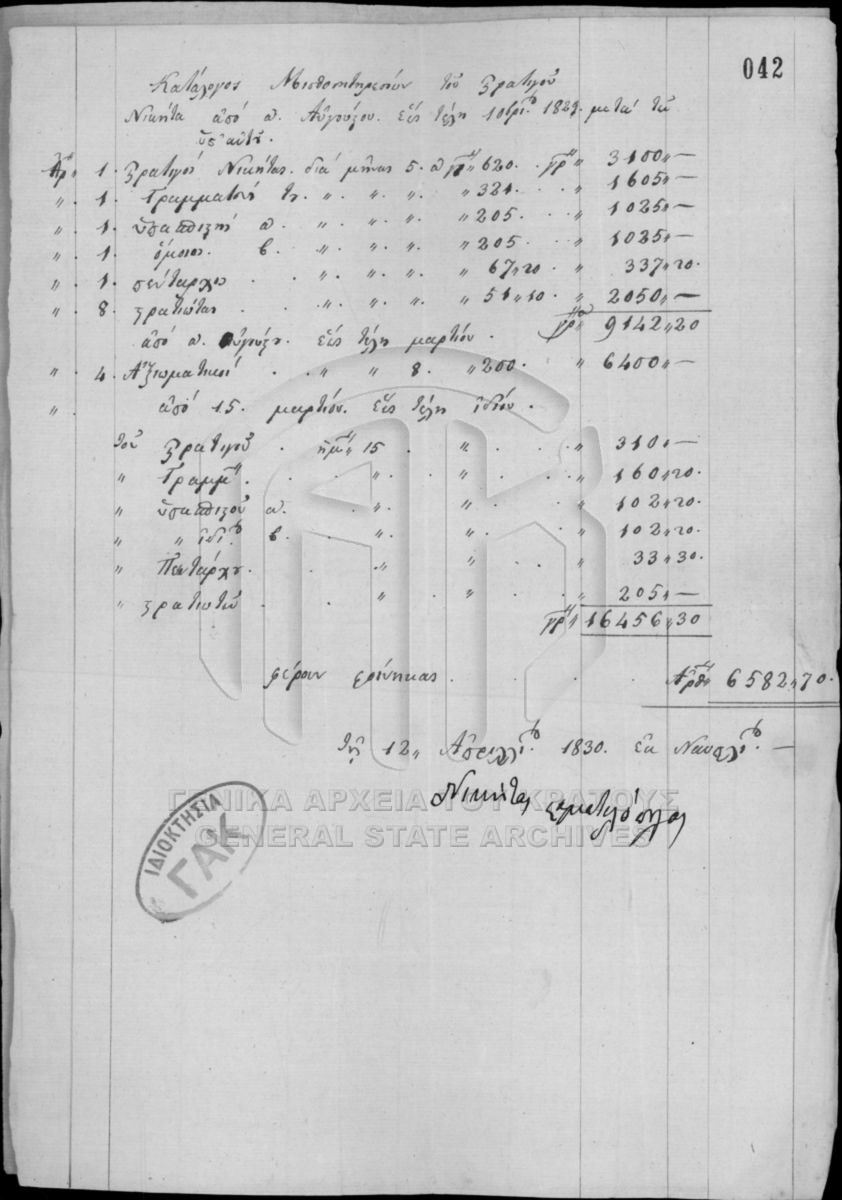 042
Κατάλογος Μισθοσιτηρεσίων τοῦ Στρατηγοῦ
Νικήτα ἀπό α. Αὐγούστου. εἰς τέλη 10βρίου 1829. μετά τῶν
ὑπ' αὐτόν.
Ἀρ 1. Στρατηγός Νικήτας. διά μῆνας 5. α γρ 620. γρ 3100 〃 —
〃 . 1. Γραμματεύς του. 〃 . 〃 . 〃 . 〃 321 . . 〃 1605 〃 —
〃 . 1. ὑπασπιστής α . 〃 . 〃 . 〃 . 〃 205 . . 〃 1025 〃 —
〃 . 1. ὅμοιος . β . 〃 . 〃 . 〃 . 〃 205 . . 〃 1025 〃 —
〃 . 1. πεντάρχης . . 〃 . 〃 . 〃 . 〃 67 〃 20 . 〃 337 〃 20 .
〃 . 8. στρατιώτας . . 〃 . 〃 . 〃 . 〃 51 〃 10 . 〃 2050 〃 —
γρ 9142 〃 20
ἀπό α. Αὐγούστου . εἰς τέλη μαρτίου .
〃 . 4. Ἀξιωματικοί . . 〃 〃 8 . 〃 200 . 〃 6400 〃 —
〃 . ἀπό 15 . μαρτίου . εἰς τέλη ἰδίου .
τοῦ Στρατηγοῦ . ἡμ 15 . 〃 . . 〃 310 〃 —
〃 Γραμμ . . . 〃 . 〃 . . 〃 160 〃 20 .
〃 ὑπασπιστοῦ α . . 〃 . 〃 . . 〃 102 〃 20 .
〃 〃 ἰδίου β . 〃 . 〃 . . 〃 102 〃 20 .
〃 Πεντάρχου . . . 〃 . 〃 . . 〃 33 〃 30 .
〃 στρατιωτῶν . . 〃 . 〃 . . 〃 205 〃 —
γρ 16456 〃 30
φέρουν φοίνικας . . . . . Ἀρθ 6582 〃 70 .
τῇ 12 〃 Ἀπριλλίου 1830 . ἐν Ναυπλίῳ . —
Νικήτας Σταματελόπουλος
ΓΕΝΙΚΑ ΑΡΧΕΙΑ ΤΟΥ ΚΡΑΤΟΥΣ
GENERAL STATE ARCHIVES
ΙΔΙΟΚΤΗΣΙΑ
ΓΑΚ